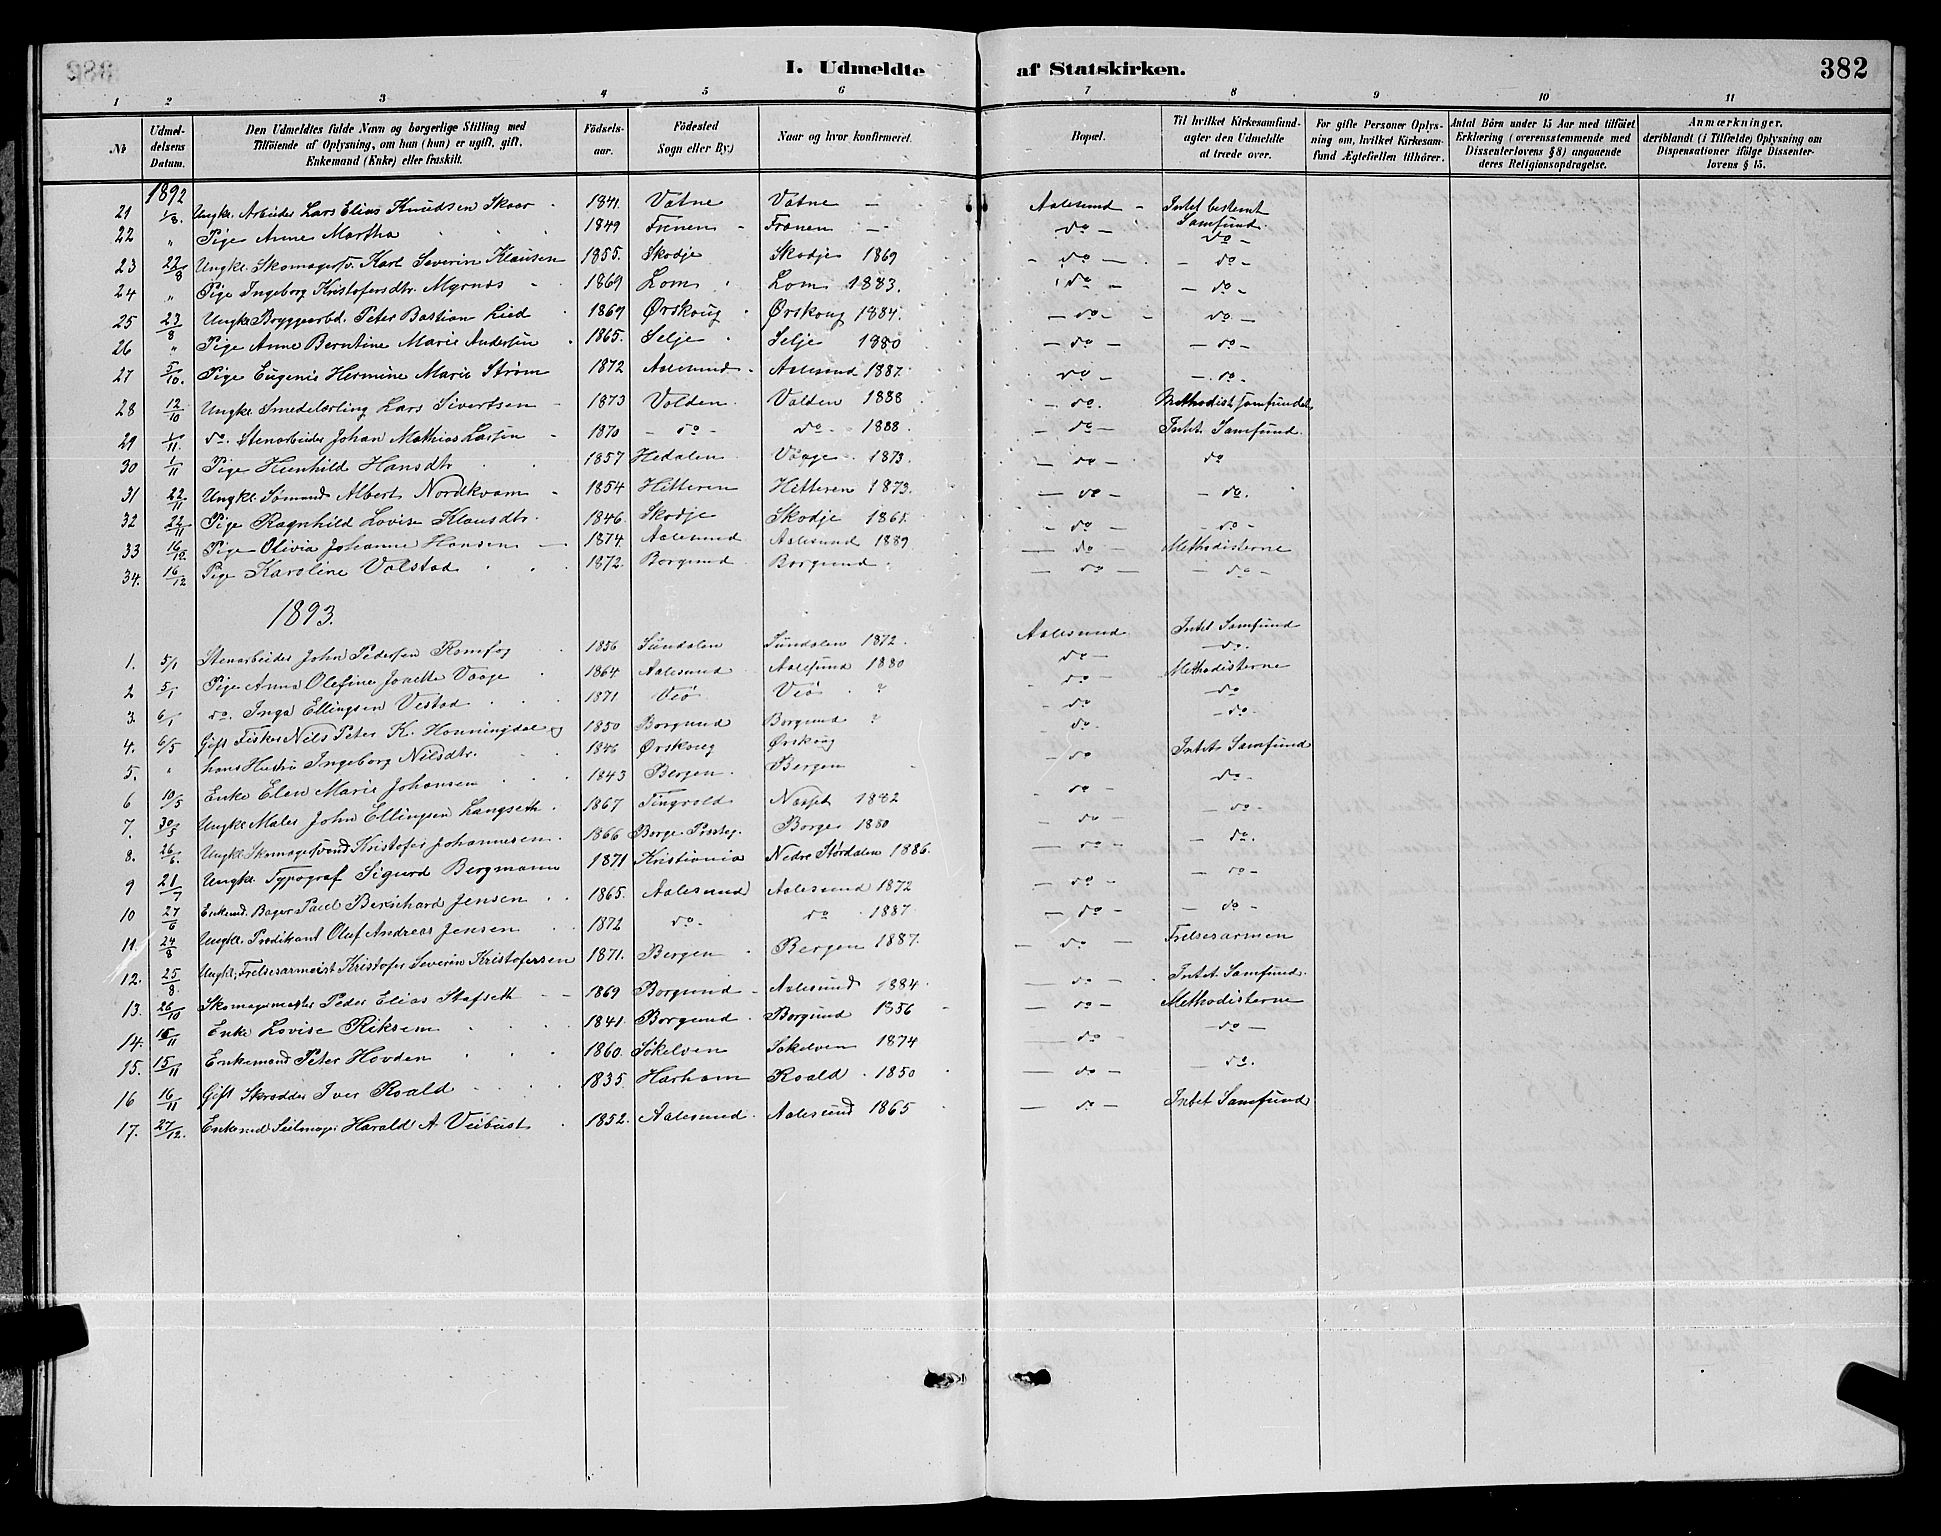 I. Udmeldte af Statskirken. 382
1 2 3 4 5 6 7 8 9 10 11
№ | Udmel-delsens Datum. | Den Udmeldtes fulde Navn og borgerlige Stilling med Tilføiende af Oplysning, om han (hun) er ugift, gift, Enkemand (Enke) eller fraskilt. | Födsels-aar. | Födested Sogn eller By) | Naar og hvor konfirmeret. | Bopæl. | Til hvilket Kirkesamfund agter den Udmeldte at træde over. | For gifte Personer Oplysning om, hvilket Kirkesamfund Ægtefællen tilhörer. | Antal Börn under 15 Aar med tilföiet Erklæring (overensstemmende med Dissenterlovens § 8) angaaende deres Religionsopdragelse. | Anmærkninger, deriblandt (i Tilfælde) Oplysning om Dispensationer ifölge Dissenterlovens § 15.
1892
21 1/8. Ungkl. Arbeider Lars Elias Knudsen Skaar 1841. Vatne Vatne — Aalesund Intet bestemt Samfund
22 " Pige Anne Martha 1849 Frænen Frænen — do — do —
23 22/8 Ungkl. Skomagersv. Karl Severin Klausen 1855. Skodje Skodje 1869 — do — — do —
24 " Pige Ingeborg Kristofersdtr. Myrnes 1869 Lom Lom 1883. do — — do —
25 23/8 Ungkl. Bryggearbd. Peter Bastian Lied 1869 Ørskoug Ørskoug 1884. — do — do —
26 " Pige Anne Berntine Marie Andersen 1865. Selje Selje 1880 — do — — do —
27 5/10. Pige Eugenie Hermine Marie Strøm 1872 Aalesund Aalesund 1887. do — — do —
28 12/10 Ungkl. Smedelærling Lars Sivertsen 1873 Volden Volden 1888 — do. Methodist samfundet
29 1/11. do. Stenarbeider Johan Mathias Larsen 1870 — do — do — 1888. — do — Intet Samfund.
30 1/11 Pige Hunhild Hansdtr 1857 Hedalen Vaage 1873. — do — do
31 22/11 Ungkl. Sømand Albert Nordkvam 1854 Hitteren Hitteren 1873. — do — — do.
32 22/11 Pige Ragnhild Lovise Klausdtr. 1846. Skodje Skodje 1865. — do — — do —
33 16/12 Pige Olivia Johanne Hansen 1874. Aalesund Aalesund 1889 — do — Methodisterne
34. 16/12 Pige Karoline Valstad 1872. Borgund Borgund — do — — do —
1893.
1. 5/1 Stenarbeider John Pedersen Romfog 1856 Sundalen Sundalen 1872. Aalesund Intet Samfund
2 5/1 Pige Anna Olefine Jonette Vaage 1864 Aalesund Aalesund 1880 do — — do.
3. 6/1 do. Inga Ellingsen Vestad 1871 Veø Veø ? — do — Methodisterne
4. 6/5 Gift Fisker Nils Peter K. Honningdal og 1850 Borgund Borgund ? — do — do
5. " hans Hustru Ingeborg Nilsdtr. 1846 Ørskoug Ørskoug do. — do.
6 10/5 Enke Elen Marie Johansen 1843 Bergen Bergen — do Intet Samfund
7. 30/5 Ungkl. Maler John Ellingsen Langseth 1867 Tingvold Næsset 1882 — do — do —
8. 26/6. Ungkl. Skomagersvend Kristofer Johannesen 1866 Borge Borge 1880 — do — — do —
9 21/7 Ungkl. Typograf Sigurd Bergmann 1871 Kristiania Nedre Stordalen 1886. — do — — do.
10 27/6 Enkemd. Bager Paul Bernhard Jensen 1865. Aalesund Aalesund 1872 — do — — do —
11. 24/8 Ungkl. Prædikant Oluf Andreas Jensen 1872 do. do 1887. — do — — do —
12. 25/8. Ungkl. Frelsesarmeist Kristofer Severin Kristofersen 1871. Bergen Bergen 1887. — do — Frelsesarmen
13. 26/10 Skomagermester Peder Elias Stafseth 1869 Borgund Aalesund 1884. — do — Intet Samfund.
14. 15/11 Enke Lovise Riksem 1841. Borgund Borgund 1856 — do — Methodisterne
15. 15/11 Enkemand Peter Hovden 1860. Søkelven Søkelven 1874 — do — — do —
16 16/11 Gift Skrædder Iver Roald 1835. Harham Roald 1850 — do — — do.
17. 27/12. Enkemd Seilmag. Harald A. Veibust 1852. Aalesund Aalesund 1865 — do — Intet Samfund